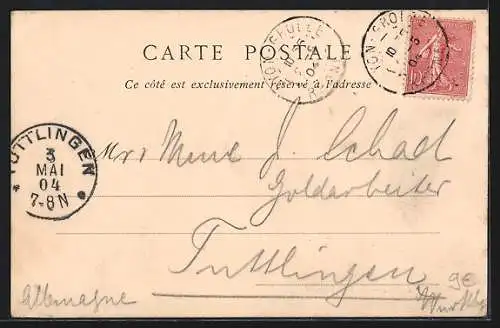 CARTE POSTALE
Ce côté est exclusivement réservé à l'adresse
TUTTLINGEN
3
MAI
04
7-8N
Mrs Mme J. Schad
Goldarbeiter
Tuttlingen
Allemagne
9€